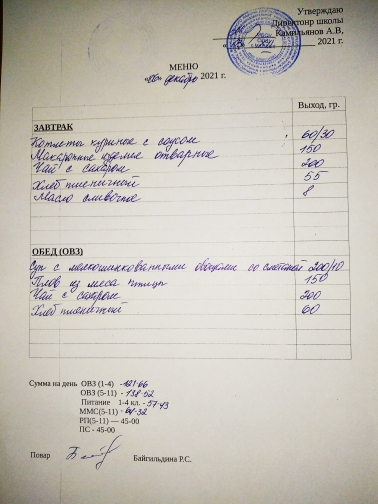 Утверждаю
Директонр школы
Камильянов А.В,
2021 г.
МЕНЮ
«06» декабря 2021 г.
Выход, гр.
ЗАВТРАК
Котлеты куриные с соусом 60/30
Макаронные изделия отварные 150
Чай с сахаром 200
Хлеб пшеничный 55
Масло сливочное 8
ОБЕД (ОВЗ)
Суп с мелкошинкованными овощами со сметаной 200/10
Плов из мяса птицы 150
Чай с сахаром 200
Хлеб пшеничный 60
Сумма на день ОВЗ (1-4) -121-66
ОВЗ (5-11) -138-52
Питание 1-4 кл. -57-43
ММС(5-11) -64-32
РП(5-11) — 45-00
ПС - 45-00
Повар Байгильдина Р.С.